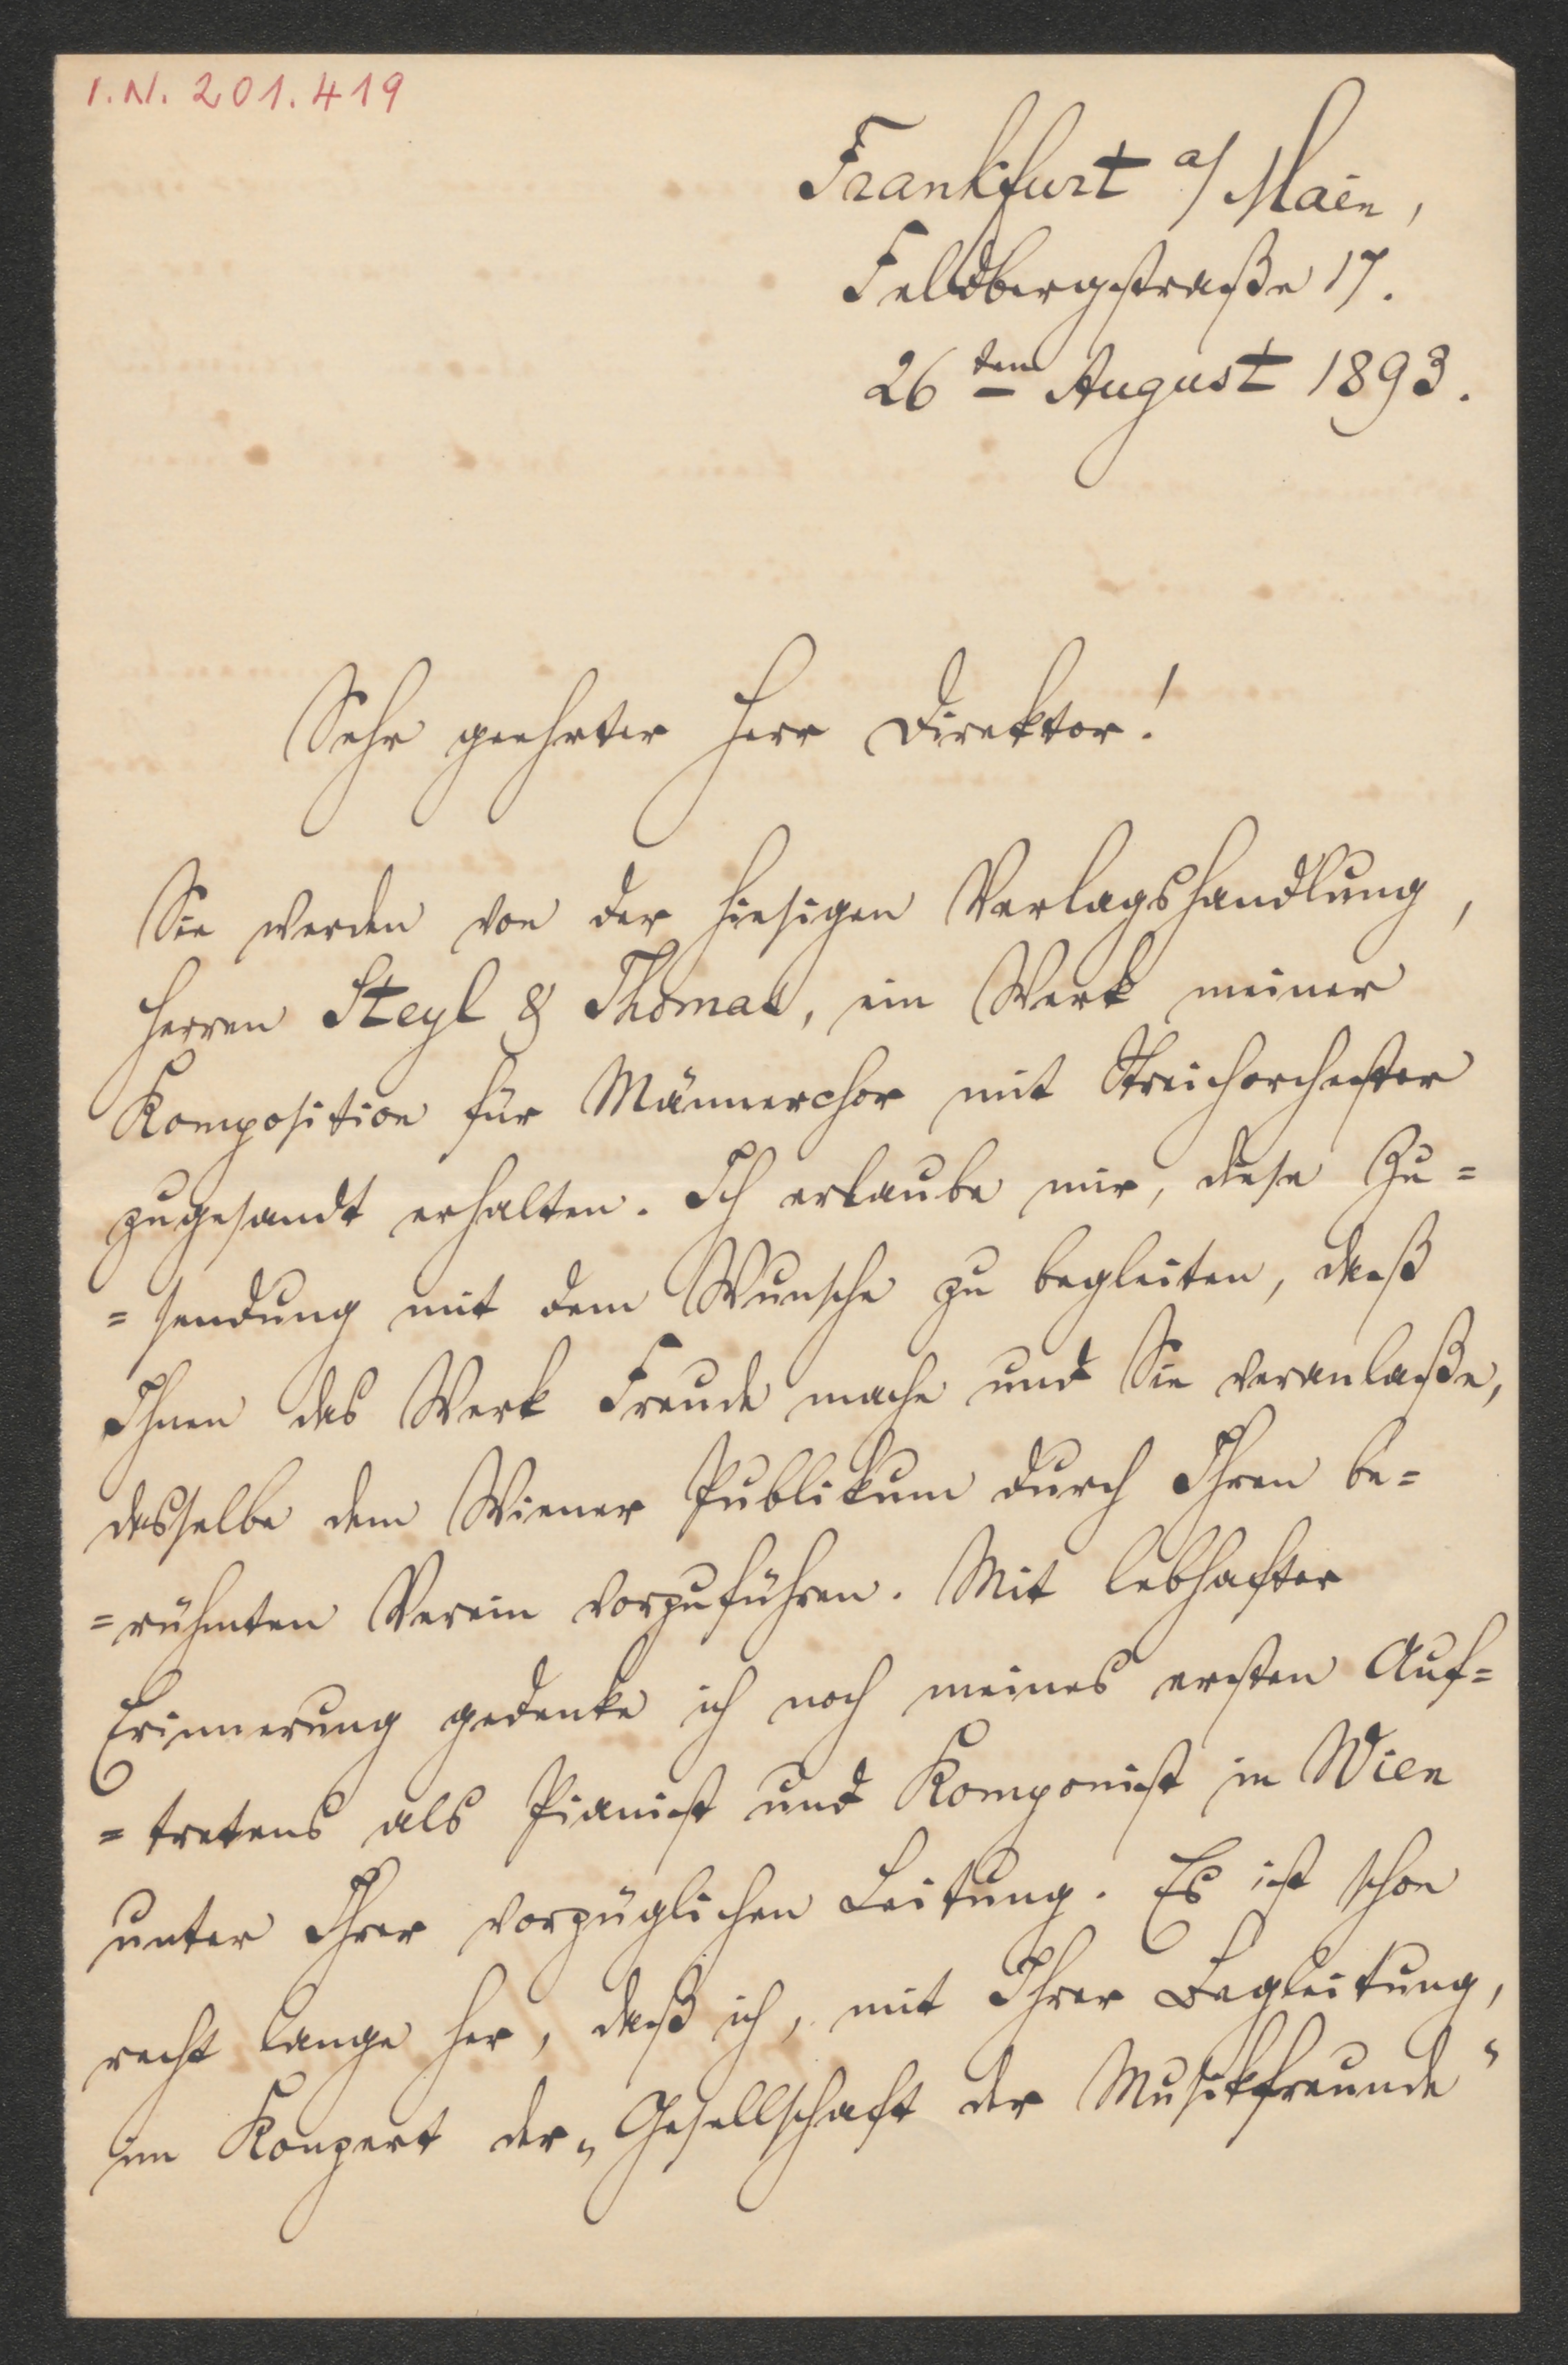 I.N. 201.419
Frankfurt a/ Main,
Feldbergstraße 17.
26ten August 1893.
Sehr geehrter Herr Direktor!
Sie werden von der hiesigen Verlagshandlung,
Herren Steyl & Thomas, ein Werk meiner
Komposition für Männerchor mit Streichorchester
zugesandt erhalten. Ich erlaube mir, diese Zu=
=sendung mit dem Wunsche zu begleiten, daß
Ihnen das Werk Freude mache und Sie veranlaße,
dasselbe dem Wiener Publikum durch Ihren be=
=rühmten Verein vorzuführen. Mit lebhafter
Erinnerung gedenke ich noch meines ersten Auf=
=tretens als Pianist und Komponist in Wien
unter Ihrer vorzüglichen Leitung. Es ist schon
recht lange her, daß ich, mit Ihrer Begleitung,
im Konzert der „Gesellschaft der Musikfreunde“